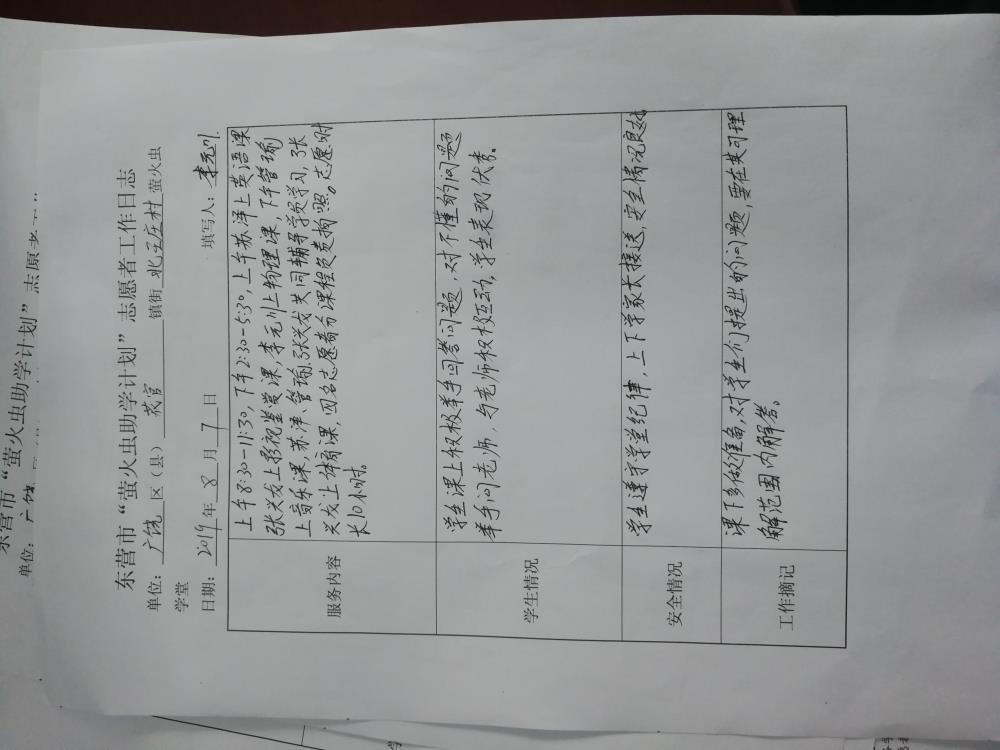 东营市“萤火虫助学计划”志愿者
单位：广饶
东营市“萤火虫助学计划”志愿者工作日志
单位：广饶区（县）花官镇街北王庄村萤火虫
学堂
日期：2019年8月7日 填写人：李元川
服务内容
上午8:30-11:30，下午2:30-5:30，上午苏洋上英语课
张兴龙上影视鉴赏课，李元川上物理课，下午管瑜
上音乐课，苏洋、管瑜、张兴龙共同辅导学段学习，张
兴龙上体育课，四名志愿者为课程负责拍照。志愿时
长10小时。
学生情况
学生课上积极举手回答问题，对不懂的问题
举手问老师，与老师积极互动，学生表现优秀。
安全情况
学生遵守学堂纪律，上下学家长接送，安全情况良好
工作摘记
课下多做准备，对学生们提出的问题，要在其可理
解范围内解答。